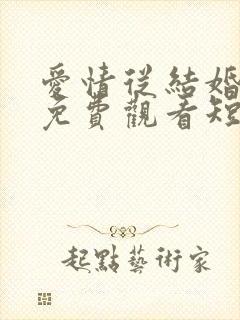 愛情從結婚
免費觀看短
起點藝術家